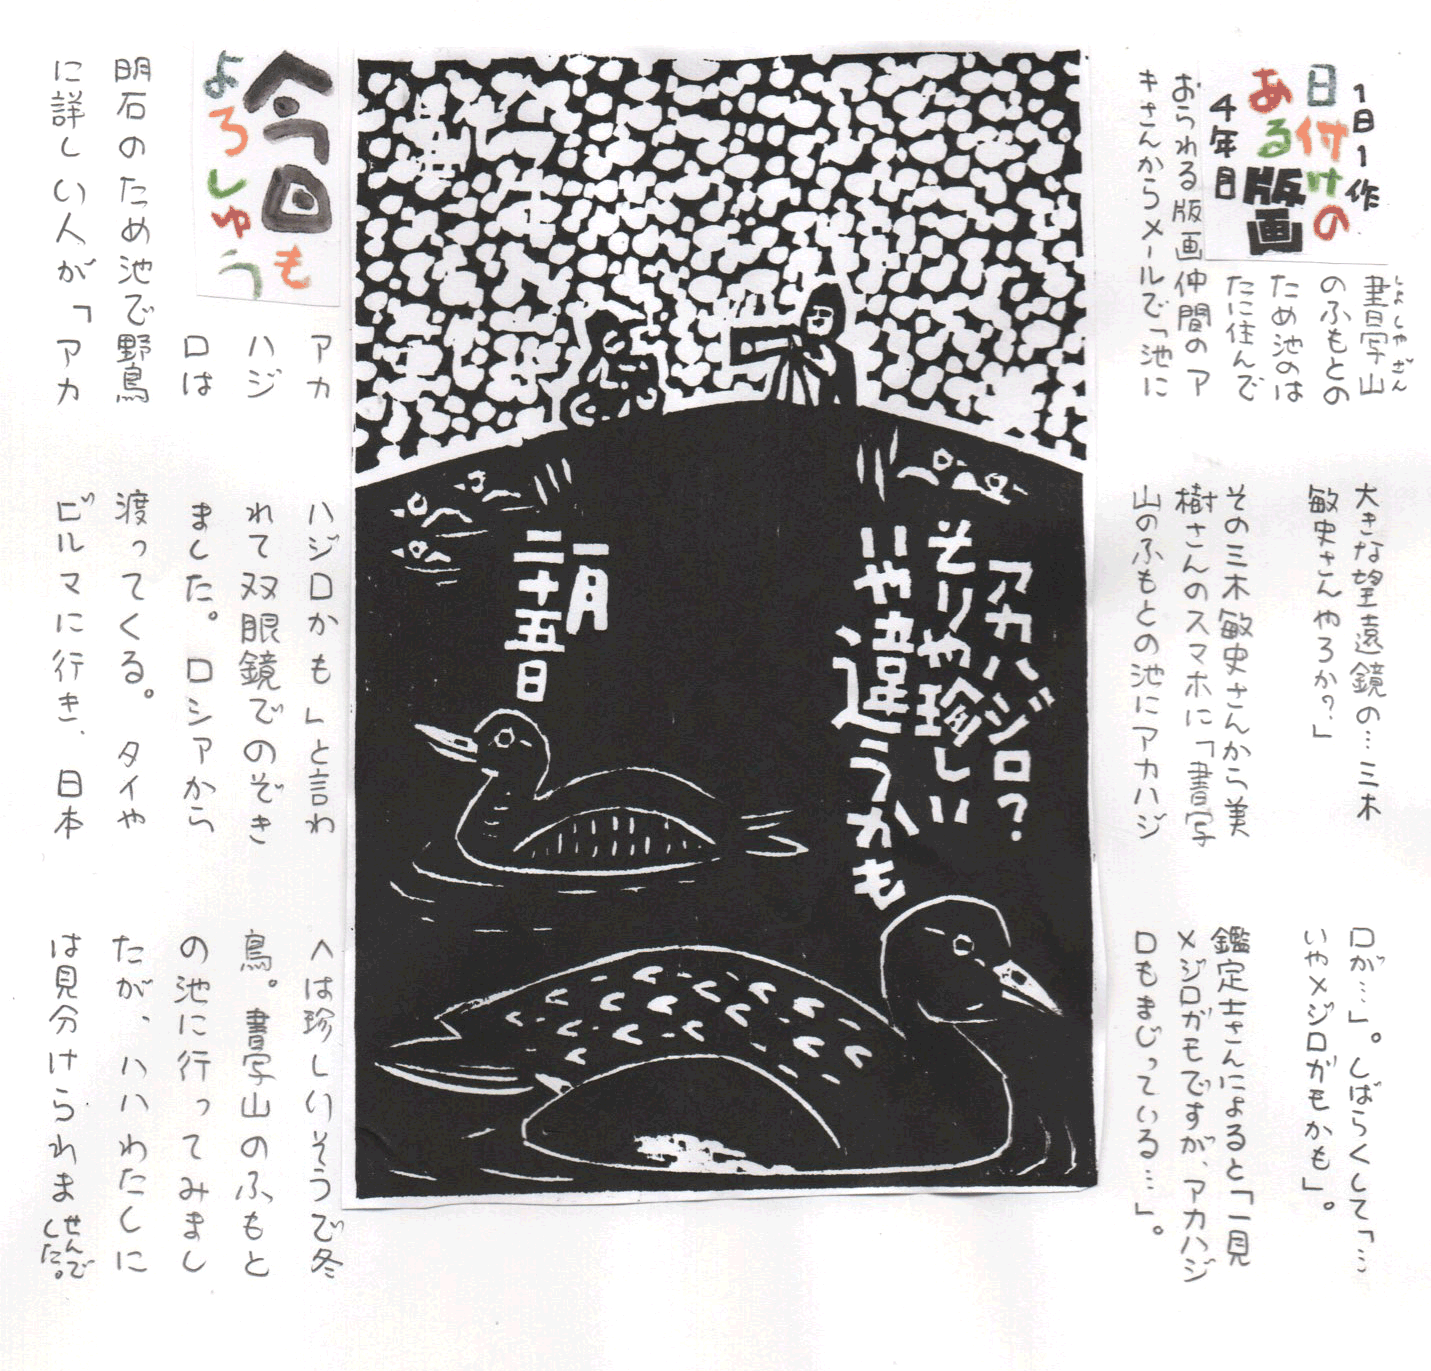 1日1作
日付けの
ある版画
4年目
しょしゃざん
書写山
のふもとの
ため池のは
たに住んで
おられる版画仲間のア
キさんからメールで「池に
大きな望遠鏡の…三木
敏史さんやろか?」
その三木敏史さんから美
樹さんのスマホに「書写
山のふもとの池にアカハジ
ロが…」。しばらくして「…
いやメジロガモかも」。
鑑定士さんによると「一見
メジロガモですが、アカハジ
ロもまじっている…」。
アカハジロ?
そりゃ珍しい
いや違うかも
一月
二十五日
今日も
よろしゅう
アカ
ハジ
ロは
明石のため池で野鳥
に詳しい人が「アカ
ハジロかも」と言わ
れて双眼鏡でのぞき
ました。ロシアから
渡ってくる。タイや
ビルマに行き、日本
へは珍しいそうで冬
鳥。書写山のふもと
の池に行ってみまし
たが、ハハわたしに
は見分けられませんでした。